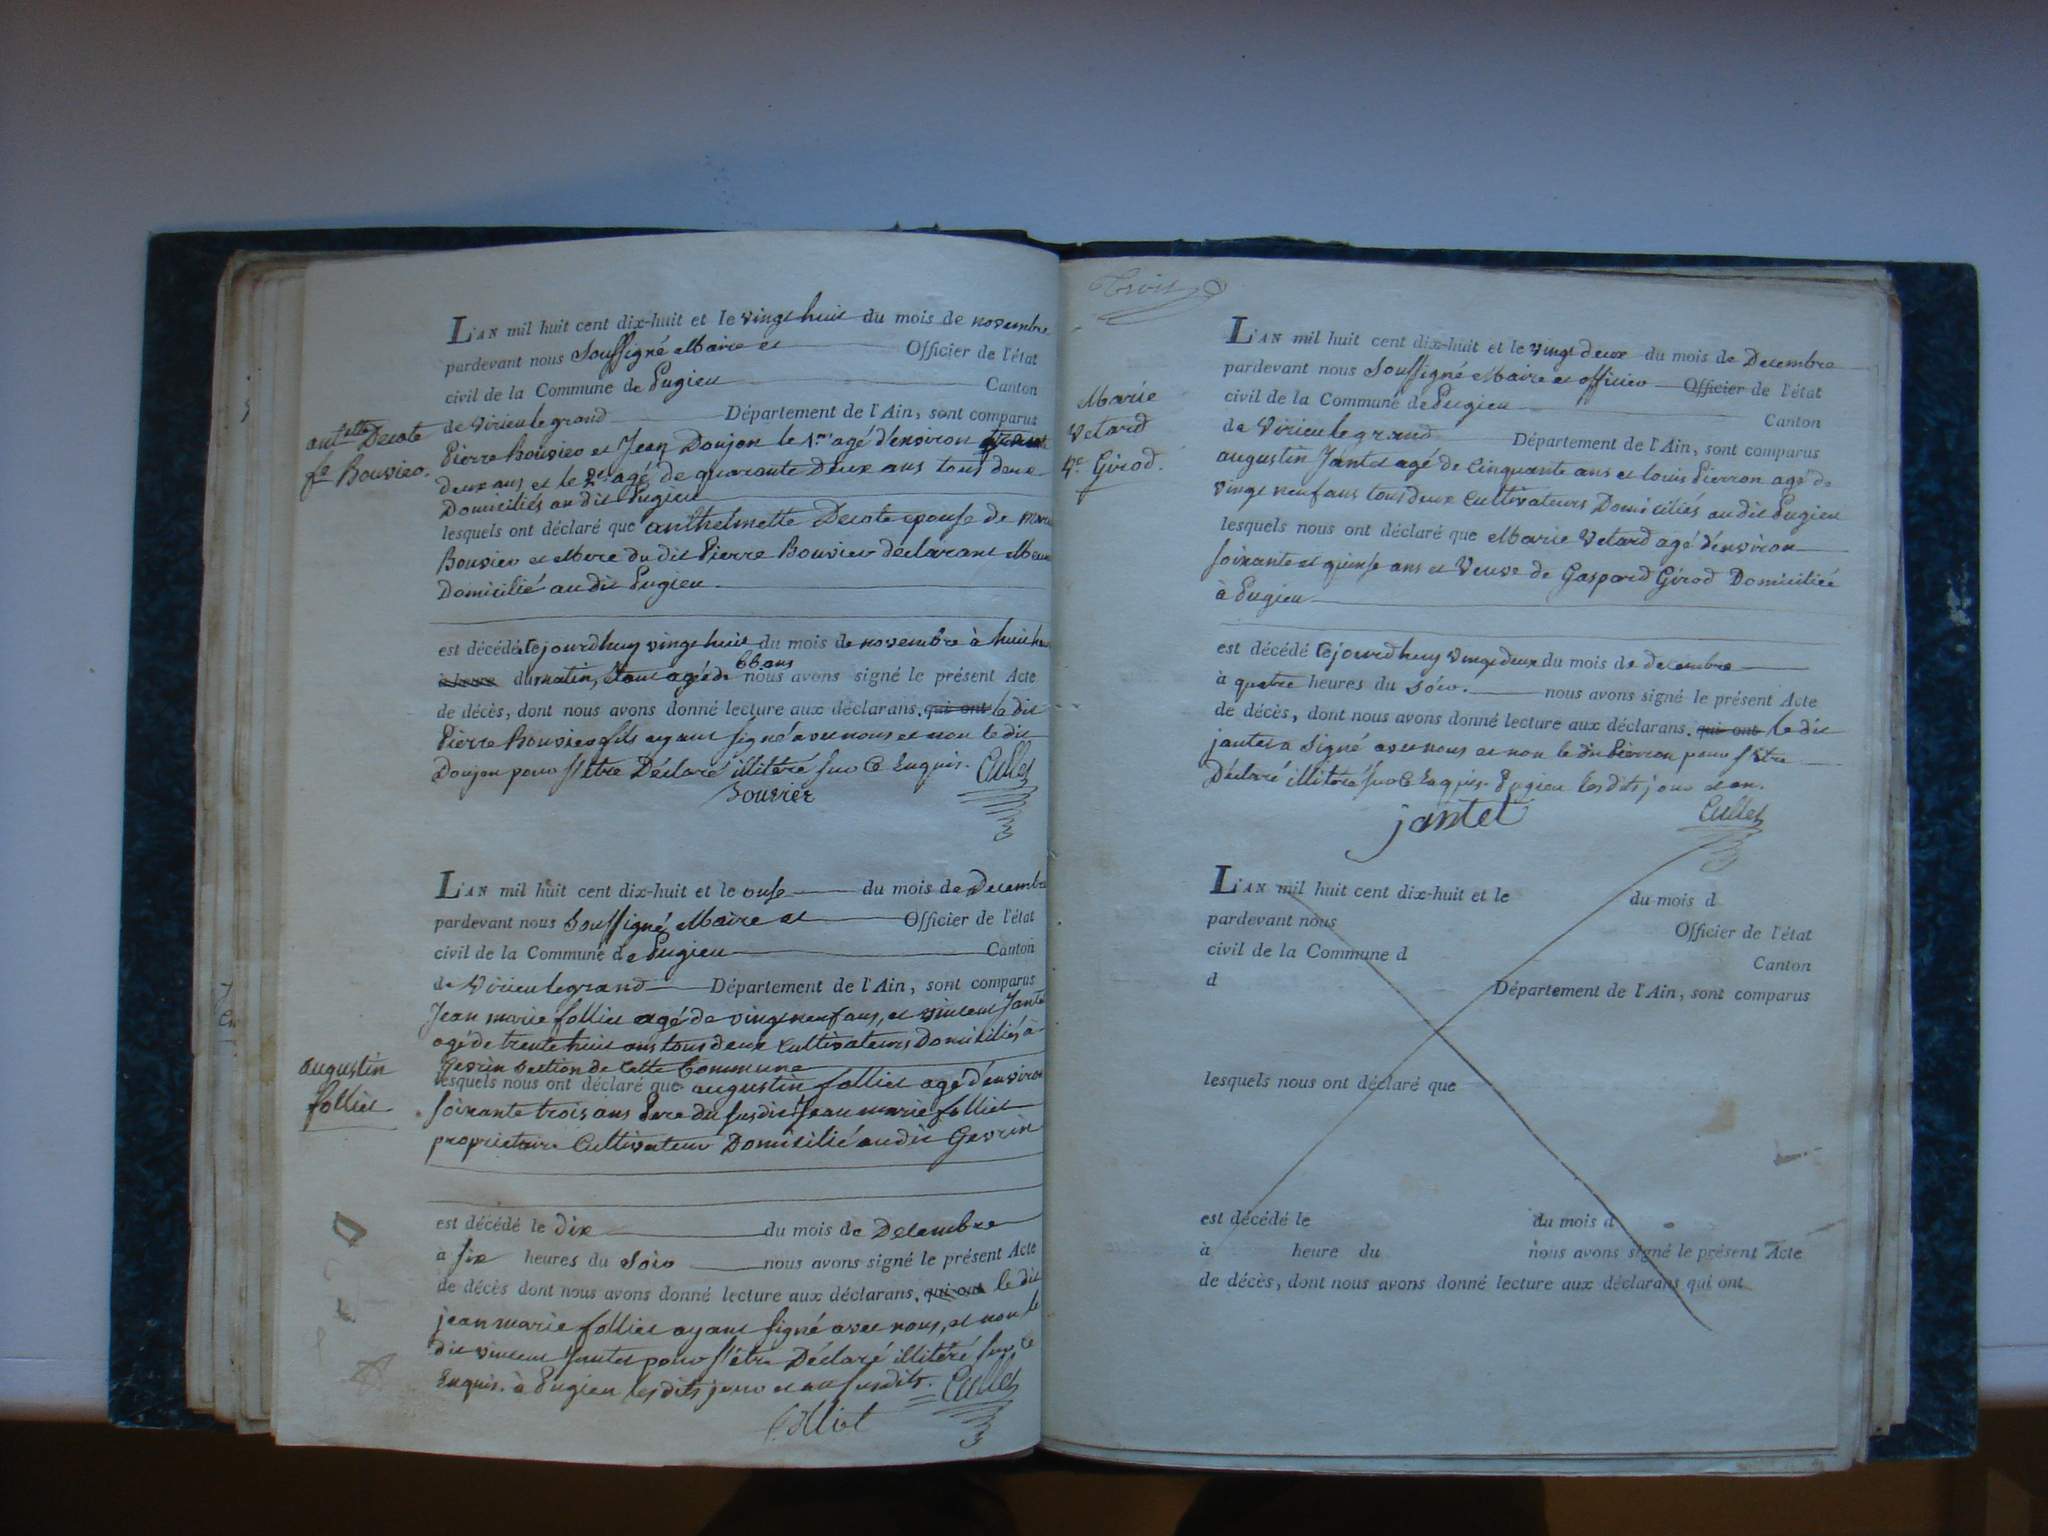 L'AN mil huit cent dix-huit et le vingt huit du mois de novembre
pardevant nous Soussigné Maire et Officier de l'état
civil de la Commune de Pugieu Canton
de Virieu le grand Département de l'Ain, sont comparus
ant.ette Decote
fe Bouvier.
Pierre Bouvier et Jean Doujon le 1.er agé d'environ
deux ans et le 2.e agé de quaronte Deux ans tous deux
Domiciliés au dit Pugieu
lesquels ont déclaré que anthelmette Decote epouse de
Bouvier et Mere du dit Pierre Bouvier declarant
Domicilié au dit Pugieu
est décédé cejourd'huy vingt huit du mois de novembre à huit
à heure du matin, Etant agé de 66 ans nous avons signé le présent Acte
de décès, dont nous avons donné lecture aux déclarans. qui ont le dit
Pierre Bouvier fils ayant signé avec nous et non le dit
Doujon pour s'être Déclaré illitéré sur ce Enquis. Cullet
Bouvier
L'AN mil huit cent dix-huit et le onse du mois de Decembre
pardevant nous Soussigné Maire et Officier de l'état
civil de la Commune de Pugieu Canton
de Virieu legrand Département de l'Ain, sont comparus
Jean marie folliet agé de vingt neuf ans, et vincent Jantet
agé de trente huit ans tous deux cultivateurs Domiciliés à
Gevrin section de cette Commune
augustin
folliet
lesquels nous ont déclaré que augustin folliet agé d'environ
soixante trois ans Pere du susdit Jean marie folliet
proprietaire Cultivateur Domicilié au dit Gevrin
est décédé le dix du mois de Decembre
à six heures du soir nous avons signé le présent Acte
de décès dont nous avons donné lecture aux déclarans. qui ont le dit
jean marie folliet ayant signé avec nous, et non le
dit vincent Jantet pour s'être Déclaré illitéré sur ce
Enquis. à Pugieu les dits jour et an susdits. Cullet
folliet
Trois
L'AN mil huit cent dix-huit et le vingt deux du mois de Decembre
pardevant nous Soussigné Maire et officier Officier de l'état
civil de la Commune de Pugieu
Canton
de Virieu le grand Département de l'Ain, sont comparus
Marie
Vetard
Ve Girod.
augustin Jantet agé de Cinquante ans et louis Pierron agé de
vingt neuf ans tous deux Cultivateurs Domiciliés au dit Pugieu
lesquels nous ont déclaré que Marie Vetard agé d'environ
soixante et quinse ans et Veuve de Gaspard Girod Domiciliée
à Pugieu
est décédé cejourd'huy vingt deux du mois de decembre
à quatre heures du soir. nous avons signé le présent Acte
de décès, dont nous avons donné lecture aux déclarans. qui ont le dit
jantet a signé avec nous et non le dit Pierron pour s'être
Déclaré illitéré sur Ce Enquis. Pugieu les dits jour et an.
jantet Cullet
L'AN mil huit cent dix-huit et le du mois d
pardevant nous Officier de l'état
civil de la Commune d Canton
d Département de l'Ain, sont comparus
lesquels nous ont déclaré que
est décédé le du mois d
à heure du nous avons signé le présent Acte
de décès, dont nous avons donné lecture aux déclarans qui ont